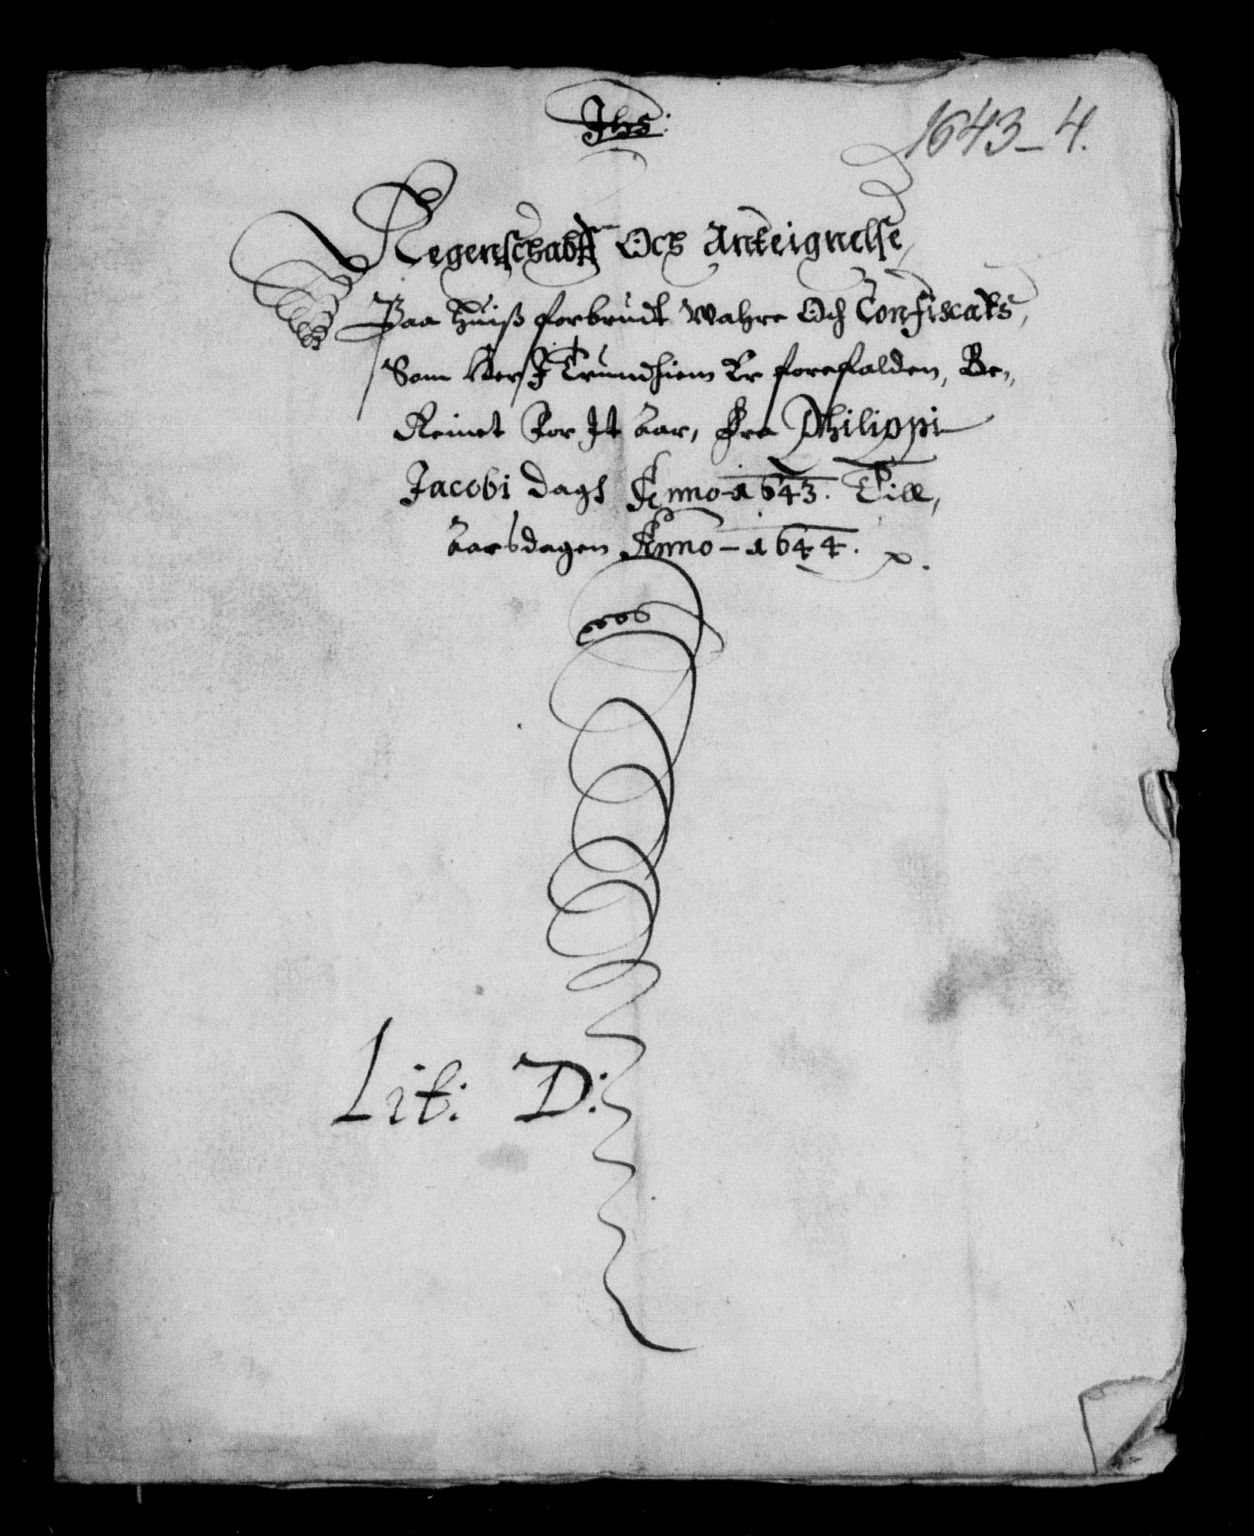 Jhs:
1643-4.
Regenschabff Och Anteignelse,
Paa huiß forbrudt Wahre Och Confiscats,
Som Her J Trundhiem Er forefalden, Be„
Reinet For Jt Aar, Fra Philippi
Jacobi dags Anno 1643. Till,
Aarsdagen Anno - 1644.
Lit: D: